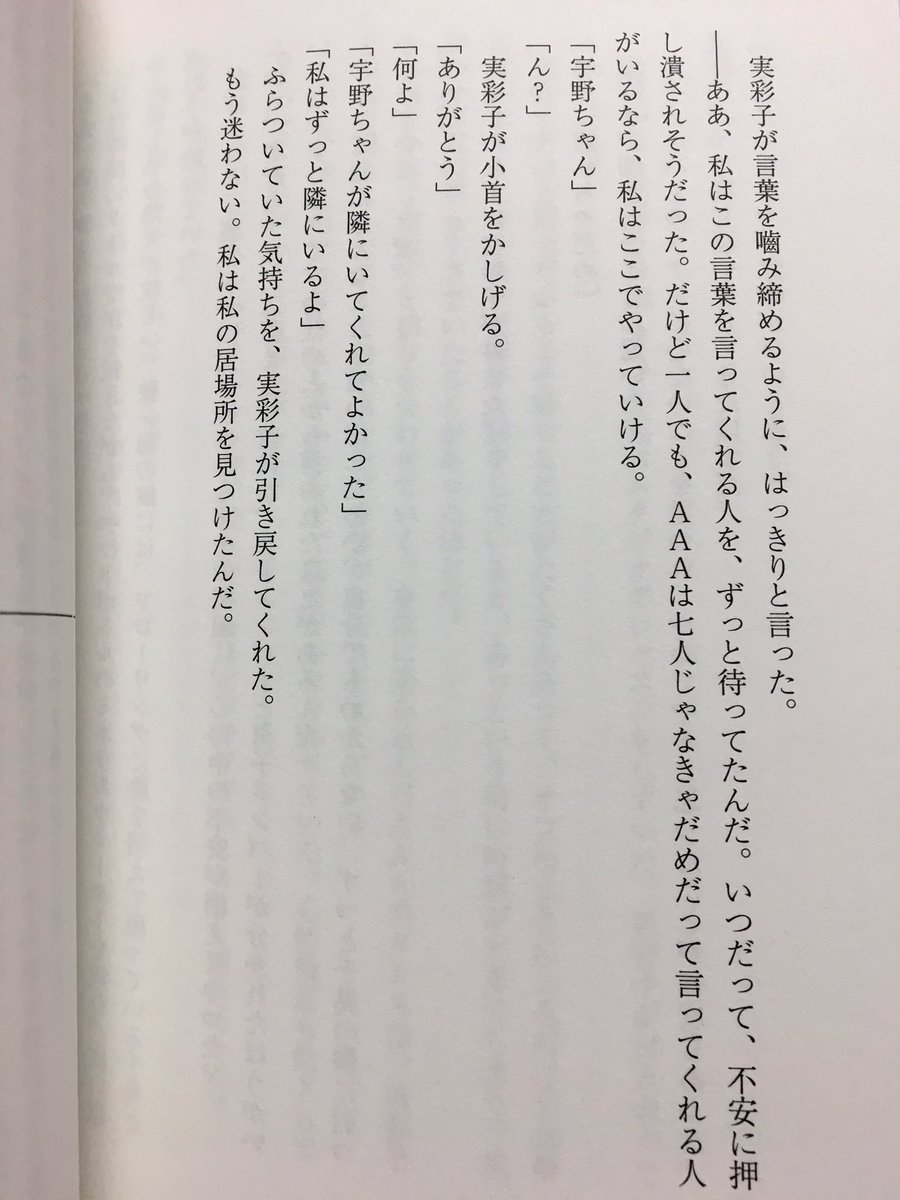 実彩子が言葉を嚙み締めるように、はっきりと言った。
――ああ、私はこの言葉を言ってくれる人を、ずっと待ってたんだ。いつだって、不安に押
し潰されそうだった。だけど一人でも、ＡＡＡは七人じゃなきゃだめだって言ってくれる人
がいるなら、私はここでやっていける。
「宇野ちゃん」
「ん？」
実彩子が小首をかしげる。
「ありがとう」
「何よ」
「宇野ちゃんが隣にいてくれてよかった」
「私はずっと隣にいるよ」
ふらついていた気持ちを、実彩子が引き戻してくれた。
もう迷わない。私は私の居場所を見つけたんだ。